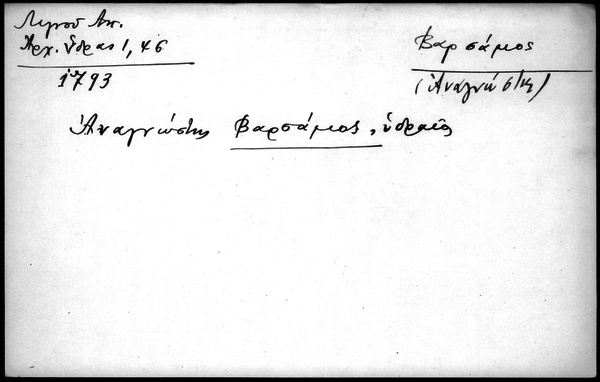 Λιγνοῦ Ἀπ.
Ἀρχ. Ὕδρας 1, 46
1793
Βαρσάμος
(Ἀναγνώστης)
Ἀναγνώστης Βαρσάμος, ὑδραῖος